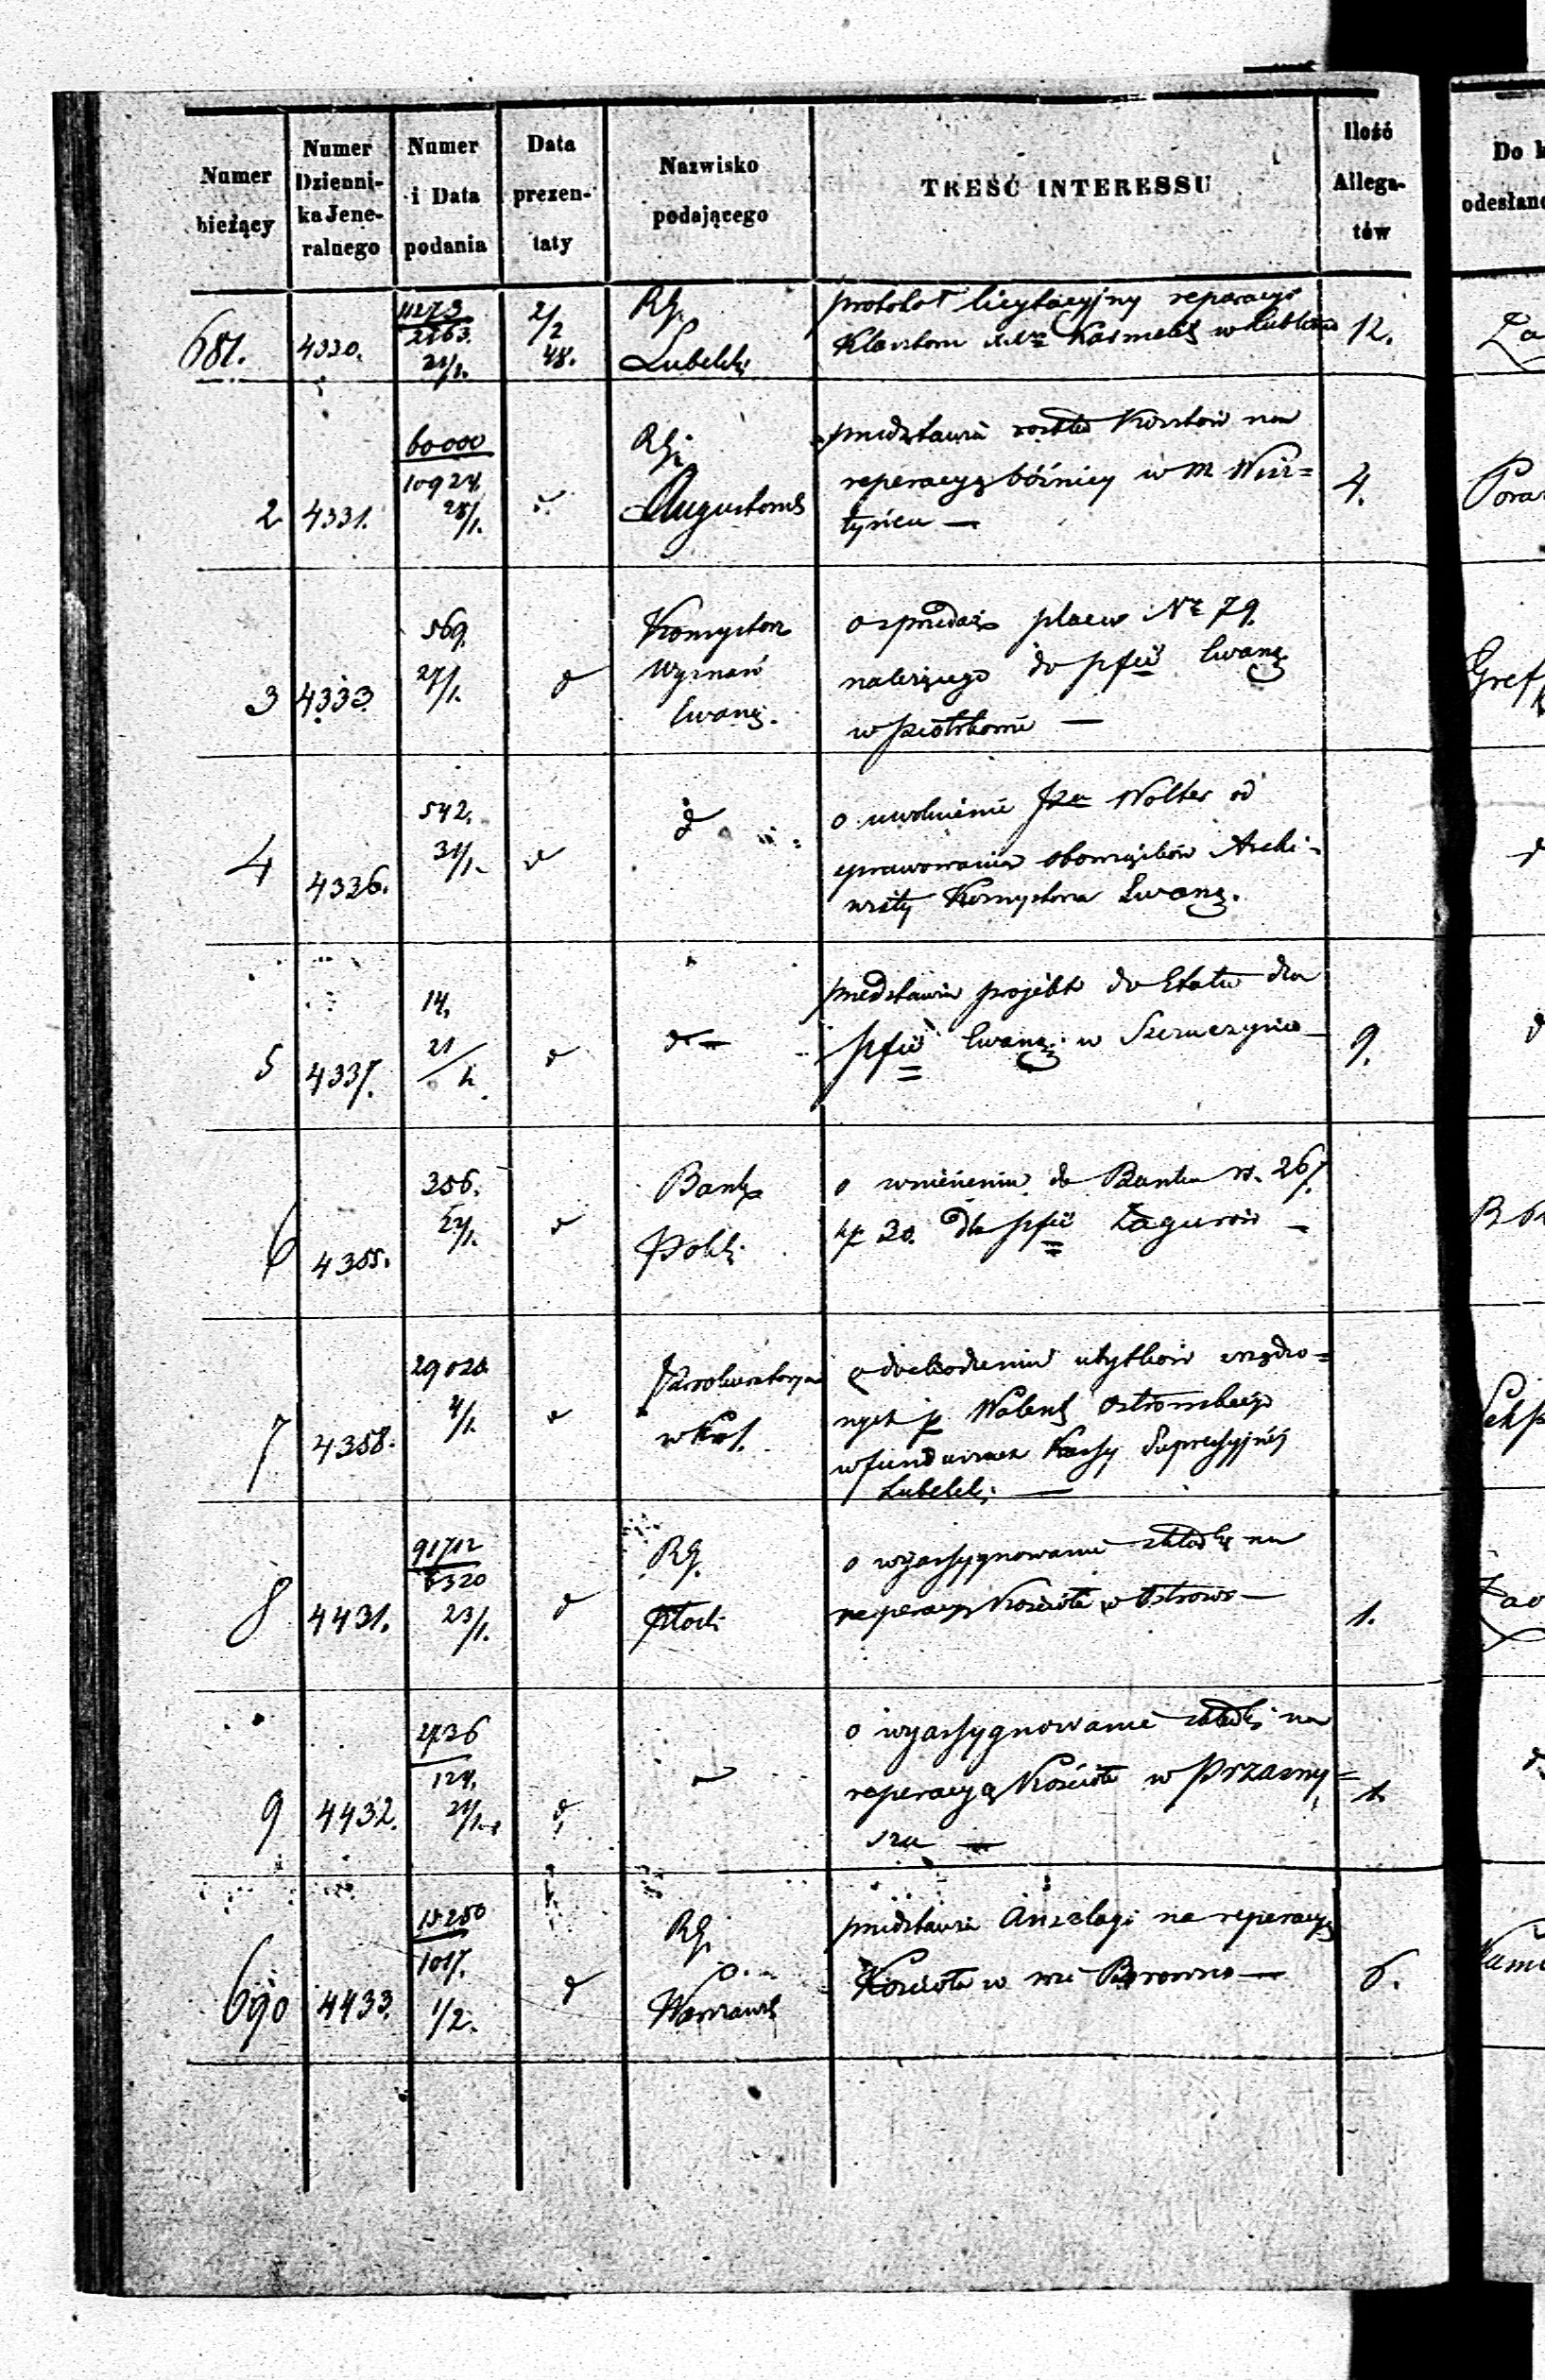 Numer bieżący
Numer Dzienni-ka Jene-ralnego
Numer i Data podania
Data prezen-taty
Nazwisko podającego
TREŚĆ INTERESSU
Ilość Allega-tów
Do k
odesłano
681. 4320. 11273 2263. 21/1. 2/2 48. RG. Lubelski
protokoł licytacyjny reparacyi
Klasztoru Karmelit w Lublinie 12.
2. 4331. 60000 10924. 28/1. d RG. Augustows
przedstawia rozkład kosztów na
reperacyą bóżnicy w m Wisz=
tyńcu — 4.
3 4333. 569. 27/1. d Konsystorz Wyznań Ewang.
o sprzedaż placu Nr 79.
należącego do pfii Ewang.
w Piotrkowie —
4 4336. 542. 31/1. d d
o uwolnienie Wolter od
sprawowania obowiązków Archi-
wisty Konsystorza Ewang.
5 4337. 14. 21/1. d d —
przedstawia projekt do Etatu dla
pfii Ewang. w — 9.
6 4355. 356. d Bank Polski
o wniesieniu do Banku rs. 267.
kp 30. dla pfii Łagunów —
7 4358. 29020 4/1. d Prokuratorya w Król.
o dochodzeniu ubytków zrządzo=
nych p Walent Ostrowskiego
w funduszach Kassy Supressyjnéj
Lubelski —
8 4431. 91712 6320 23/1. d RG. Płocki
o wyassygnowanie składki na
reperacyą Kościoła w Ostrowi — 1.
9 4432. 2736 124. 21/1. d
o wyassygnowanie składki na
reperacyą Kościoła w Przasny=
szu — 1.
690 4433. 15250 1017. 1/2. d RG. Warszaws
przedstawia Anszlagi na reperacyą
Kościoła w wsi Borowno — 6.